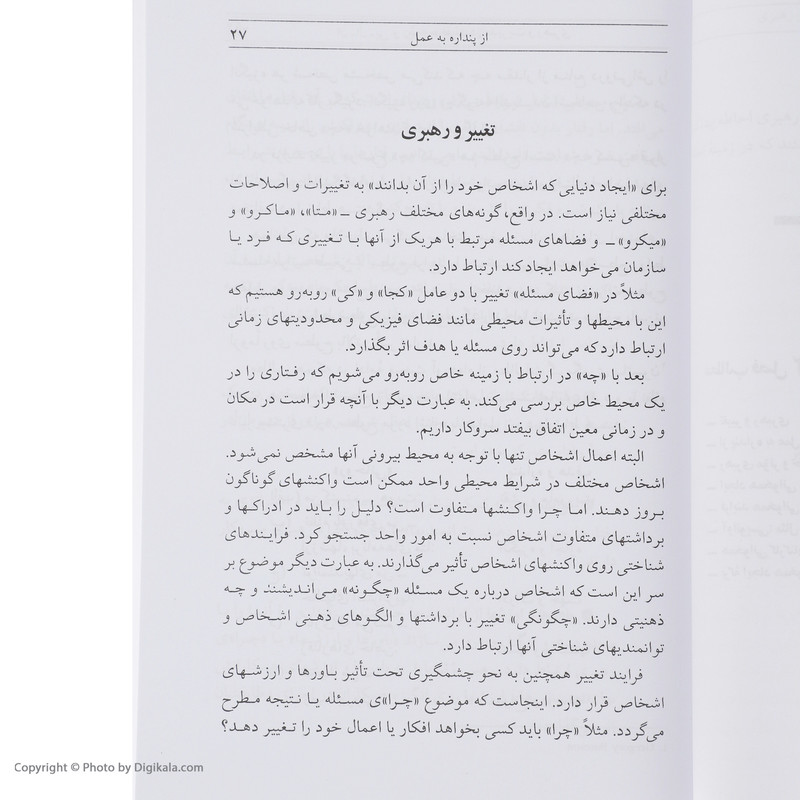 از پنداره به عمل
۲۷
تغییر و رهبری
برای «ایجاد دنیایی که اشخاص خود را از آن بدانند» به تغییرات و اصلاحات
مختلفی نیاز است. در واقع، گونه‌های مختلف رهبری ــ «متا»، «ماکرو» و
«میکرو» ــ و فضاهای مسئله مرتبط با هریک از آنها با تغییری که فرد یا
سازمان می‌خواهد ایجاد کند ارتباط دارد.
مثلاً در «فضای مسئله» تغییر با دو عامل «کجا» و «کی» روبه‌رو هستیم که
این با محیطها و تأثیرات محیطی مانند فضای فیزیکی و محدودیتهای زمانی
ارتباط دارد که می‌تواند روی مسئله یا هدف اثر بگذارد.
بعد با «چه» در ارتباط با زمینه خاص روبه‌رو می‌شویم که رفتاری را در
یک محیط خاص بررسی می‌کند. به عبارت دیگر با آنچه قرار است در مکان
و در زمانی معین اتفاق بیفتد سروکار داریم.
البته اعمال اشخاص تنها با توجه به محیط بیرونی آنها مشخص نمی‌شود.
اشخاص مختلف در شرایط محیطی واحد ممکن است واکنشهای گوناگون
بروز دهند. اما چرا واکنشها متفاوت است؟ دلیل را باید در ادراکها و
برداشتهای متفاوت اشخاص نسبت به امور واحد جستجو کرد. فرایندهای
شناختی روی واکنشهای اشخاص تأثیر می‌گذارند. به عبارت دیگر موضوع بر
سر این است که اشخاص درباره یک مسئله «چگونه» می‌اندیشند و چه
ذهنیتی دارند. «چگونگی» تغییر با برداشتها و الگوهای ذهنی اشخاص و
توانمندیهای شناختی آنها ارتباط دارد.
فرایند تغییر همچنین به نحو چشمگیری تحت تأثیر باورها و ارزشهای
اشخاص قرار دارد. اینجاست که موضوع «چرا»ی مسئله یا نتیجه مطرح
می‌گردد. مثلاً «چرا» باید کسی بخواهد افکار یا اعمال خود را تغییر دهد؟
Copyright © Photo by Digikala.com